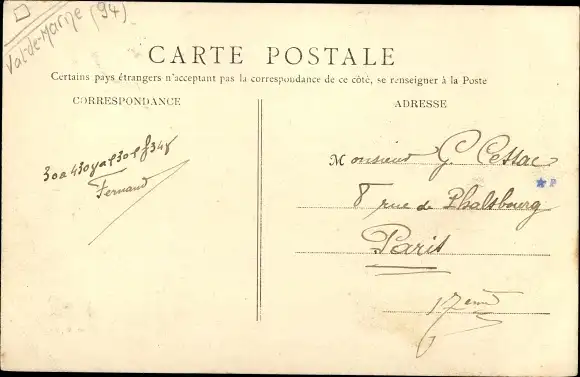 Val-de-Marne (94)
CARTE POSTALE
Certains pays étrangers n'acceptant pas la correspondance de ce côté, se renseigner à la Poste
CORRESPONDANCE
ADRESSE
Fernand
Monsieur G. Cessac
8 rue de Phalsbourg
Paris
17eme